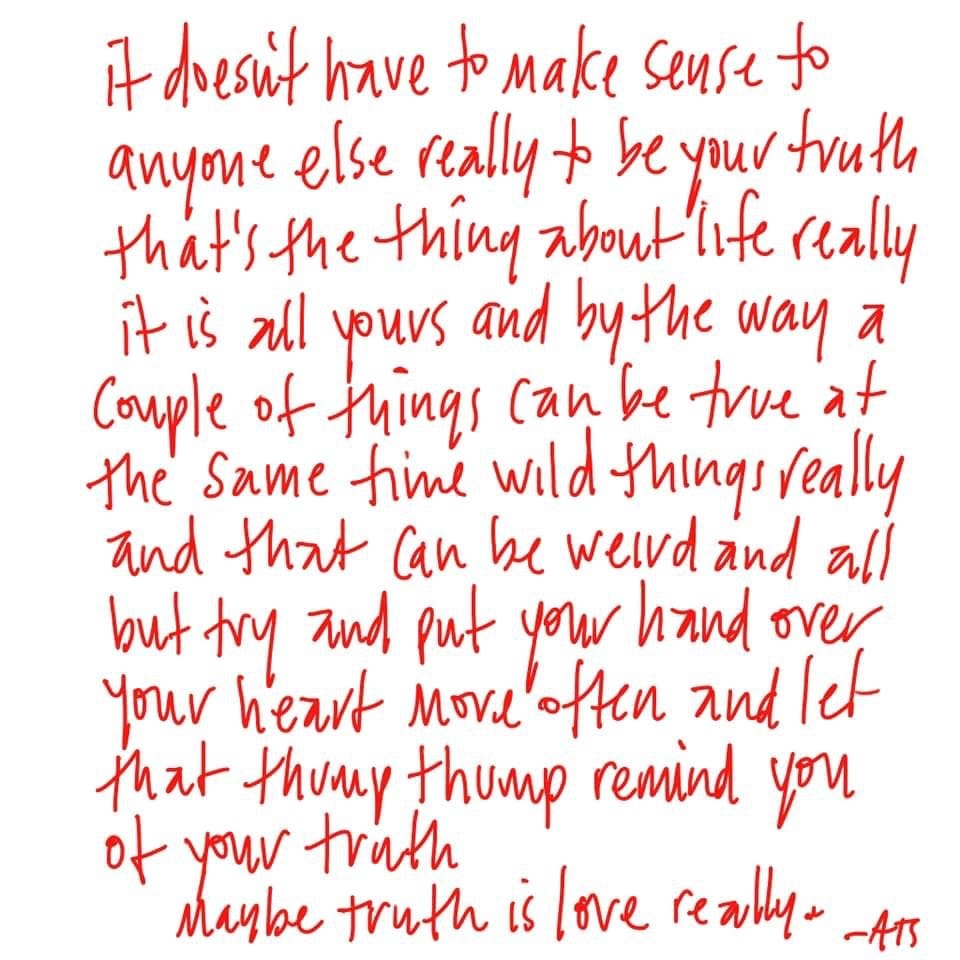 it doesn't have to make sense to
anyone else really to be your truth
that's the thing about life really
it is all yours and by the way a
couple of things can be true at
the same time wild things really
and that can be weird and all
but try and put your hand over
your heart more often and let
that thump thump remind you
of your truth
Maybe truth is love really.
-ATS